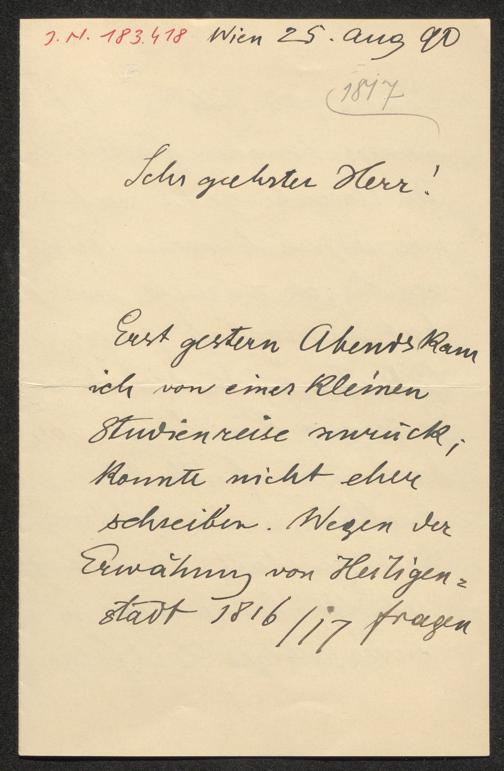 J.N. 183.418 Wien 25. Aug 90
1817
Sehr geehrter Herr!
Erst gestern Abends kam
ich von einer kleinen
Studienreise zurück;
konnte nicht eher
schreiben. Wegen der
Erwähnung von Heiligen=
stadt 1816/17 fragen